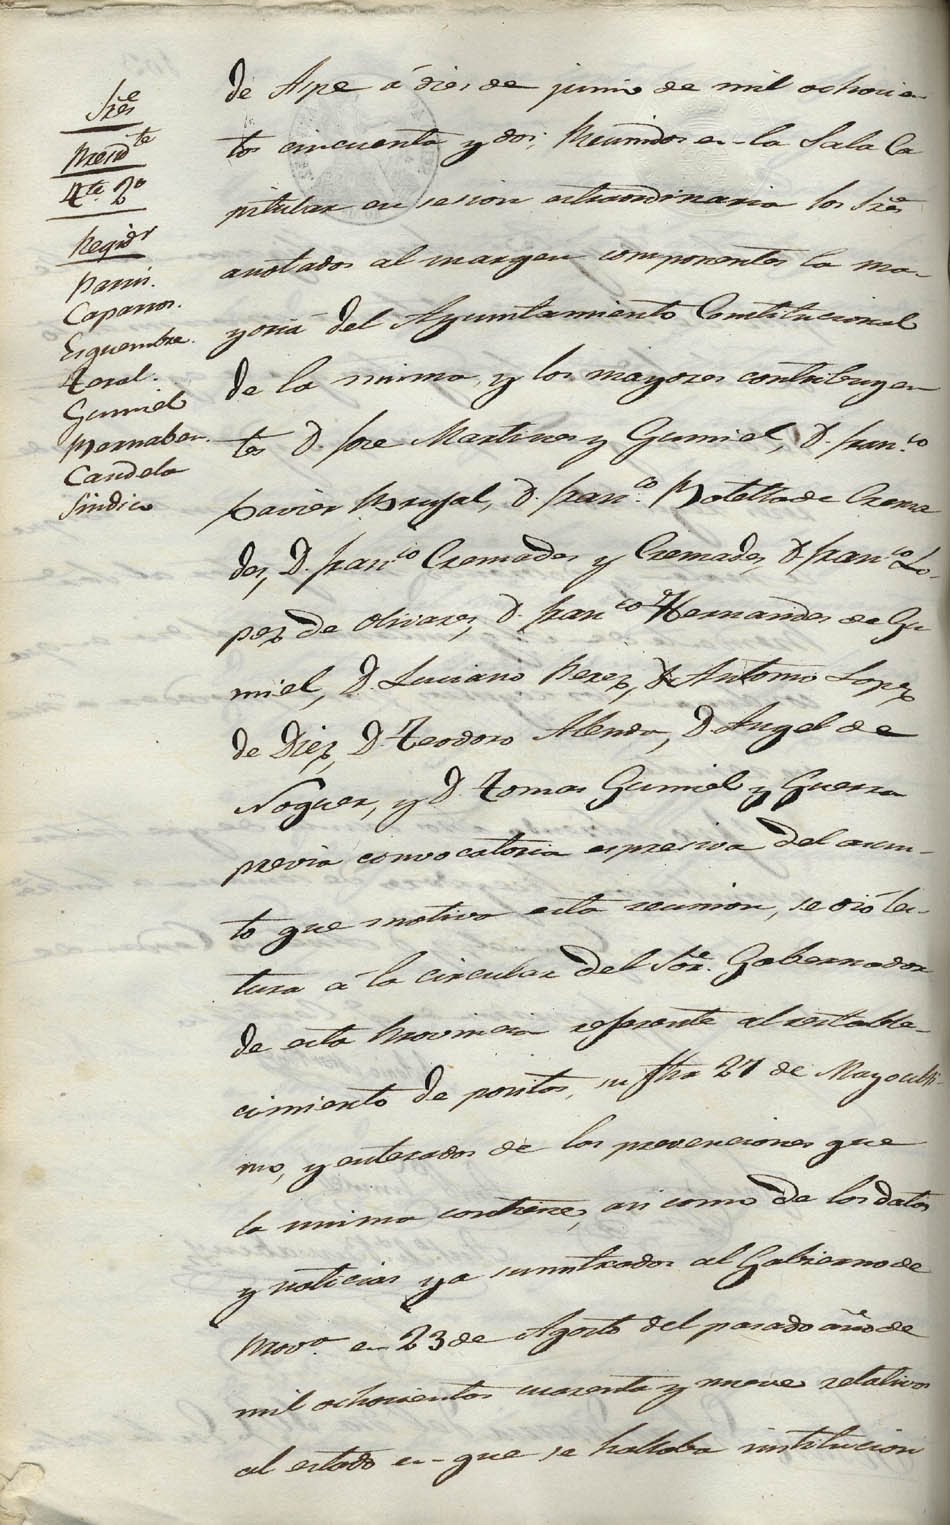 Sres
Presidte
Tte 2o
Regidr
Pavia.
Caparros.
Esquembre.
Teral.
Gumiel
Bernabeu.
Candela
Sindico
de Aspe á dies de junio de mil ochocien-
tos cincuenta y dos; Reunidos en la Sala Ca
pitular en sesion estraordinaria los Sres
anotados al margen componentes la ma-
yoria del Ayuntamiento Constitucional
de la misma, y los mayores contribuyen
tes D. Jose Martines y Gumiel, D. Franco
Xavier D. Franco. Botella de Crema
des, D. Franco Cremades y Cremades, D. Franco Lo-
pez de Olivares, D. Franco Hernandes de Gu
miel, D. Luciano Perez, D. Antonio Lopez
de Diez, D. Teodoro Alenda, D. Angel de
Noguer, y D. Tomas Gumiel y Guerra
previa convocatoria espresiva del asun-
to que motiva esta reunion, se dió lec-
tura á la circular del Sor. Gobernador
de esta Provincia referente al restable-
cimiento de positos, su fha 27 de Mayo ulti-
mo, y enterados de las prevenciones que
la misma contiene, asi como de los datos
y noticias ya suministrados al Gobierno de
Prova. en 23 de Agosto del pasado año de
mil ochocientos cuarenta y nueve relativos
al estado en que se hallaba institucion